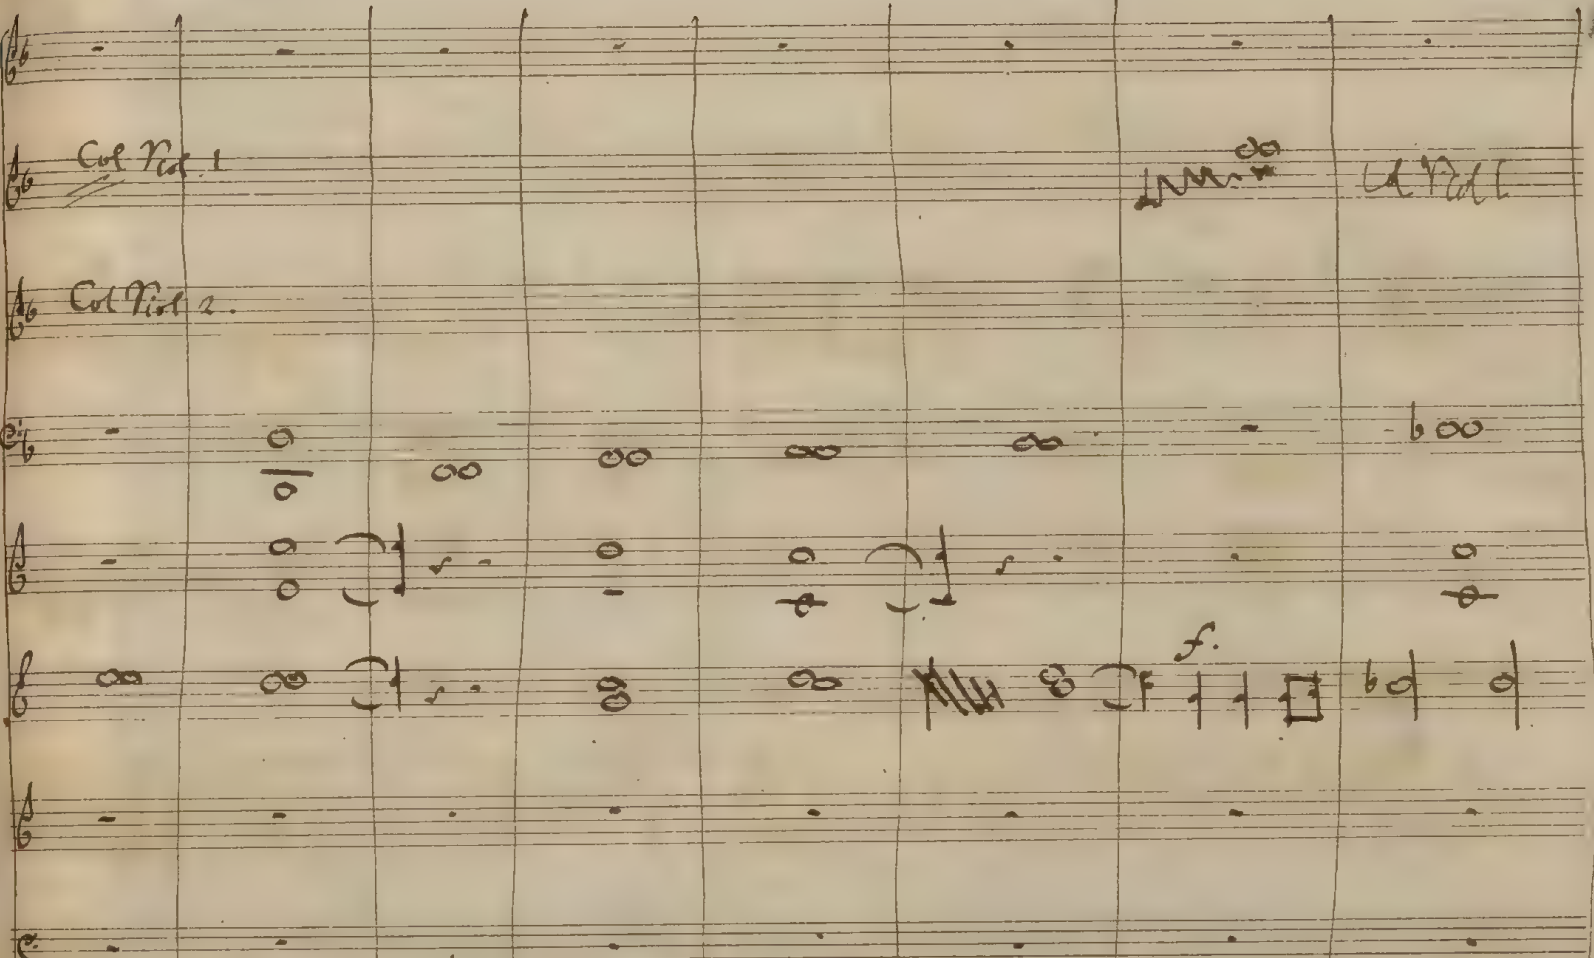 Col Viol. 1
Col Viol 1
Col Viol 2.
f.